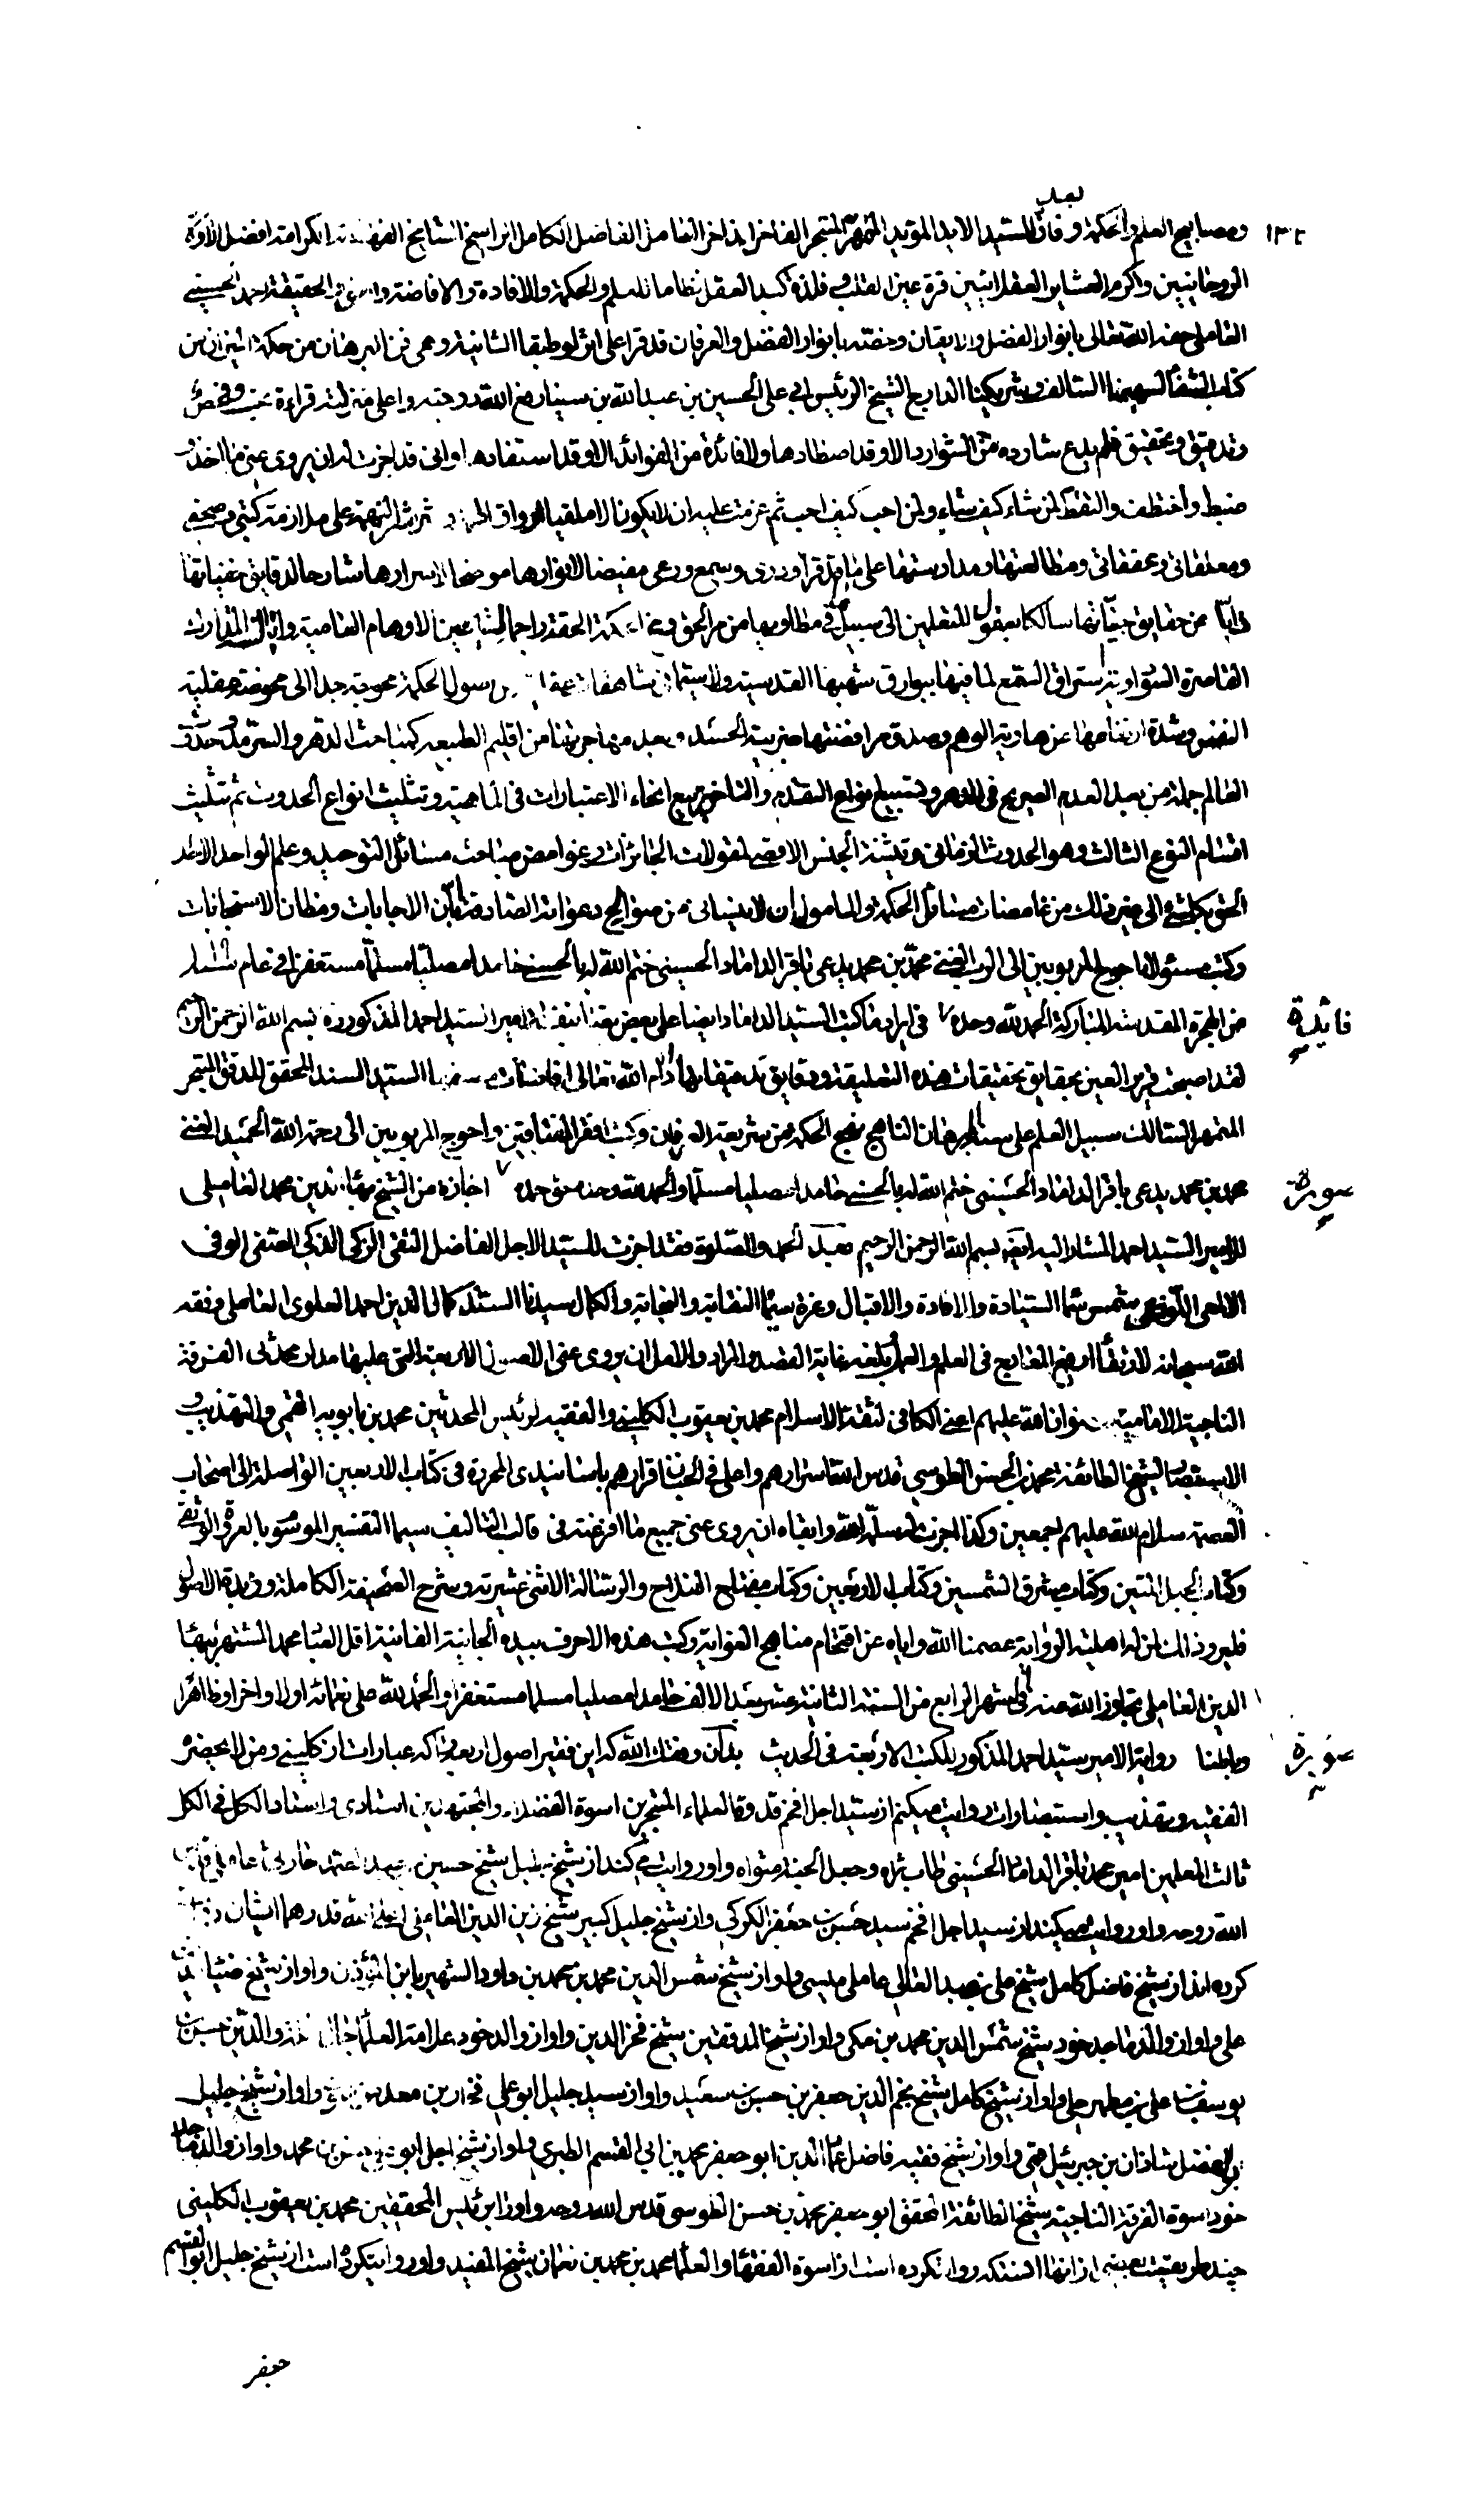 بعد
١٣٢ ومصابيح العلم والحكمة وفان السيد الايد المؤيد المتمهر المتبحر الفاخر الذاخر العامل الفاضل الكامل الراسخ الشامخ الكرامة افضل الاولاد
الروحانيين واكرم العشاير العقلانيين قرة عين القلب وفلذة كبد العقل نظاما للعلم والحكمة والافادة والافاضة والحقيقة احمد الحسيني
العاملي حفه الله تعالى بانوار الفضل والايقان وخصه بانوار الفضل والعرفان قد قرا على انولوطيقا الثانية وهي فن البرهان من حكمة الميزان من
كتاب الشفا لسهيمنا السالف وشريكنا الدارج الشيخ الرئيس ابي علي الحسين بن عبد الله بن سينا رفع الله درجته واعلى منزلته قراءة بحث وفحص
وتدقيق وتحقيق فلم يدع شاردة من الشوارد الا وقد اصطادها ولا فائدة من الفوائد الا وقد استفادها واني قد اجزت له ان يروي عني ما اخذ و
ضبط واختطف والتقط لمن شاء كيف شاء ولمن احب كيف احب ثم عزمت عليه ان لا يكون الا ملقيا ارواق الهمة وشراشر النهمة على ملازمة كتبي وصحفي
ومعلقاتي ومحققاتي ومطالعتها ومدارستها على ما قد قرا ودرى وسمع ووعى مفيضا لانوارها موضحا لاسرارها شارحا لدقايق خفياتها
ذابا عن حقايق خبياتها سالكا بعقول المتعلمين الى سبيل في مطاويها من مر الحق وراجما لشياطين الاوهام العامية والمدارك
القاصرة السوداوية استراق السمع لما فيها ببوارق شهبها القدسية رسول الحكمة محوجة جدا الى محوضة عقلية
النفس وشدة ارتفاعها عن هاوية الوهم وصدق مرافضتها ضريبة الحس وبعد مهاجرتها من اقليم الطبيعة كمباحث الدهر والسرمد وحدوث
العالم جملة من بعد العدم الصريح في الدهر وتسبيع انواع التقدم والتاخر وتربيع انحاء الاعتبارات في الماهية وتثليث انواع الحدوث ثم تثليث
اقسام النوع الثالث وهو الحدوث الزماني وتثنية الجنس الاقصى لمقولات الجائزات وغوامض مباحث مسائل التوحيد وعلم الواحد الاحد
الحق بكل شئ الى غير ذلك من غامضات مسائل الحكمة والمامول ان لا ينساني من صوالح دعواته الصادقة مآن الاجابات ومظان الاستجابات
وكتب مسئولا احوج المربوبين الى الرب الغني محمد بن محمد يدعى باقر الداماد الحسيني ختم الله له بالحسنى حامدا مصليا مسلما مستغفرا في عام
من الهجرة المقدسة المباركة الحمد لله وحده في ايراد ما كتب السيد الداماد ايضا على بعض الامير السيد احمد المذكور ره بسم الله الرحمن الرحيم
فائدة
لقد اصبحت قرير العين بحقايق تحقيقات هذه التعليقة ودقايق تدقيقاتها ادام الله تعالى افاضات السيد السند المحقق المدقق المتبحر
المتمهر السالك سبيل العلم على سنة البرهان الناهج نهج الحكمة من شريعة العرفان وكتب افقر المفتاقين واحوج المربوبين الى رحمة الله الحميد الغني
محمد بن محمد يدعى باقر الداماد الحسيني ختم الله له بالحسنى حامدا مصليا مسلما والحمد لله وحده حق حمده اجازة من الشيخ بهاء الدين محمد العاملي
صورة
للامير السيد احمد المشار اليه ايضا بسم الله الرحمن الرحيم بعد الحمد والصلوة فقد اجزت للسيد الاجل الفاضل التقي الزكي الذكي الصفي الوفي
الالمعي اللوذعي شمس سماء السيادة والافادة والاقبال وغرة سيماء النقابة والنجابة والكمال سيدنا السند كمال الدين احمد العلوي العاملي وفقه
الله سبحانه لارتقاء ارفع المعارج في العلم والعمل وبلغه غاية المقصد والمراد والامل ان يروي عني الاصول الاربعة التي عليها مدار محدثي الفرقة
الناجية الامامية رضوان الله عليهم اعني الكافي لثقة الاسلام محمد بن يعقوب الكليني والفقيه لرئيس المحدثين محمد بن بابويه القمي والتهذيب و
الاستبصار لشيخ الطائفة محمد بن الحسن الطوسي قدس الله اسرارهم واعلى في الجنان قرارهم باسانيدي المحررة في كتاب الاربعين الواصلة الى اصحاب
العصمة سلام الله عليهم اجمعين وكذا اجزت له سلمه الله وابقاه ان يروي عني جميع ما افرغته في قالب التاليف سيما التفسير الموسوم بالعروة الوثقى
وكتاب الحبل المتين وكتاب مشرق الشمسين وكتاب الاربعين وكتاب مفتاح الفلاح والرسالة الاثنى عشرية وشرح الصحيفة الكاملة وزبدة الاصول
فليرو ذلك لمن له اهلية الرواية عصمنا الله واياه عن اقتحام مناهج الغواية وكتب هذه الاحرف بيده الجانية الفانية اقل العباد محمد المشتهر ببهاء
الدين العاملي تجاوز الله عنه في شهر الرابع من السنة الثانية عشر بعد الالف حامدا مصليا مسلما مستغفرا والحمد لله على نعمائه اولا واخرا وظاهرا
وباطنا رواية الامير سيد احمد المذكور للكتب الاربعة في الحديث بدان وفقك الله كه اين فقير اصول اربعه را كه عبارات از كليني ومن لا يحضره
صورة
الفقيه وتهذيب واستبصار است روايت ميكنم از سيد اجل افخم قدوة العلماء المتبحرين اسوة الفضلاء والمجتهدين استادي واستاد الكل في الكل
ثالث المعلمين امير محمد باقر الداماد الحسيني طاب ثراه وجعل الجنة مثواه واو روايت مي كند از شيخ جليل شيخ حسين بن عبد الصمد حارثي عاملي
الله روحه واو روايت ميكند از سيد اجل افخم سيد حسن بن جعفر الكركي واز شيخ جليل كبير شيخ زين الدين العاملي اعلى الله قدرهما ايشان
كرده اند از شيخ فاضل كامل شيخ علي بن عبد العالي عاملي ميسي واو از شيخ شمس الدين محمد بن محمد بن داود الشهير بابن المؤذن واو از شيخ ضياء الدين
علي واو از والد ماجد خود شيخ شمس الدين محمد بن مكي واو از شيخ المدققين شيخ فخر الدين واو از والد خود علامة العلماء والدين حسن بن
يوسف بن علي بن مطهر حلي واو از شيخ كامل شيخ نجم الدين جعفر بن حسن بن سعيد واو از سيد جليل ابو علي فخار بن معد واو از شيخ جليل
ابو الفضل شاذان بن جبرئيل قمي واو از شيخ فقيه فاضل عماد الدين ابو جعفر محمد بن ابي القسم الطبري واو از شيخ اجل ابو علي حسن بن محمد واو از والد ماجد
خود اسوة الفرقة الناجية شيخ الطائفة المحقق ابو جعفر محمد بن حسن الطوسي قدس الله روحه واو را برئيس المحققين محمد بن يعقوب الكليني
چند طريقست از انها انستكه روايتكرده است از اسوة الفقهاء والعلماء محمد بن محمد بن نعمان شيخ المفيد واو روايتكرده است از شيخ جليل ابو القسم
جعفر